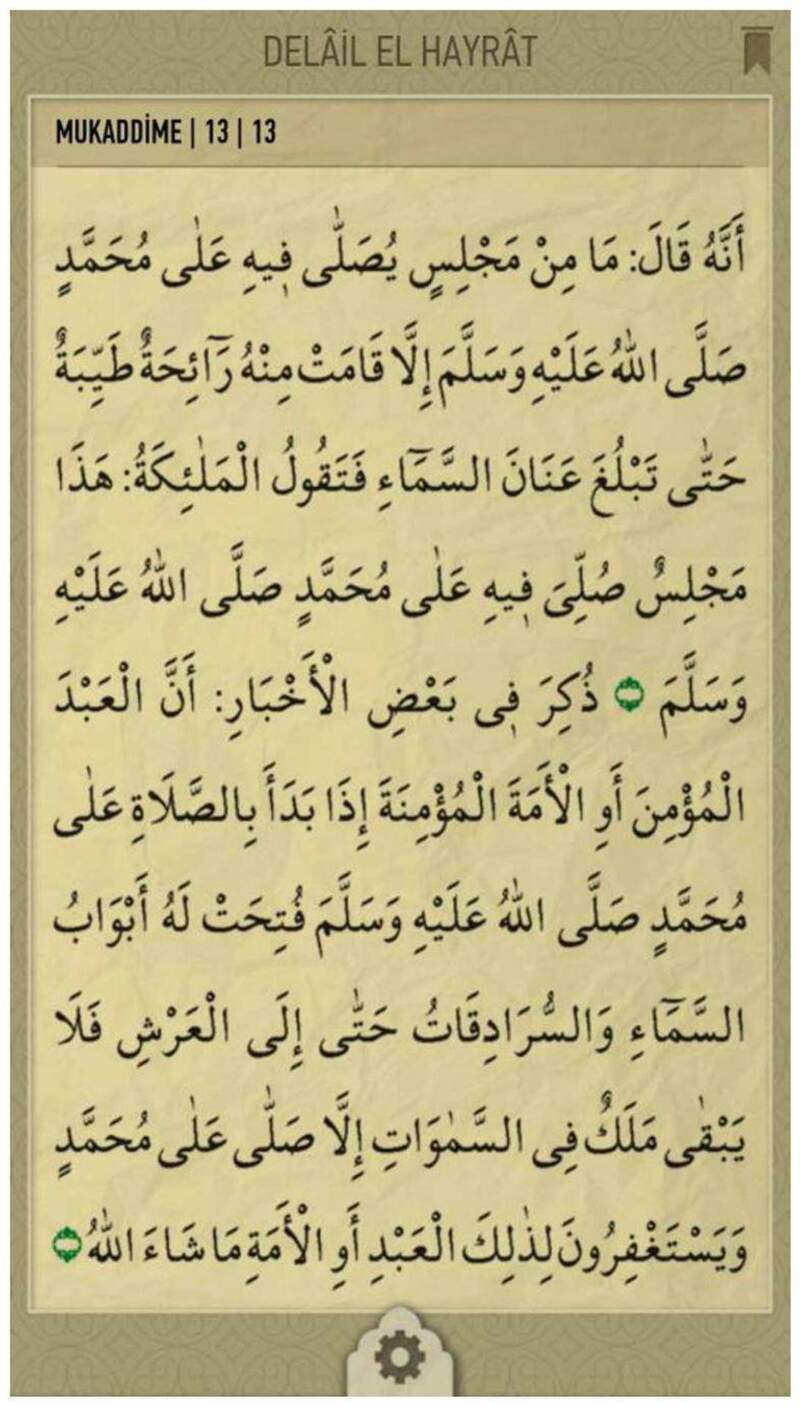 DELÂİL EL HAYRÂT
MUKADDİME | 13 | 13
أَنَّهُ قَالَ: مَا مِنْ مَجْلِسٍ يُصَلّٰى فِيهِ عَلٰى مُحَمَّدٍ
صَلَّى اللهُ عَلَيْهِ وَسَلَّمَ إِلَّا قَامَتْ مِنْهُ رَٓائِحَةٌ طَيِّبَةٌ
حَتّٰى تَبْلُغَ عَنَانَ السَّمَٓاءِ فَتَقُولُ الْمَلٰئِكَةُ: هَذَا
مَجْلِسٌ صُلِّىَ فِيهِ عَلٰى مُحَمَّدٍ صَلَّى اللهُ عَلَيْهِ
وَسَلَّمَ ذُكِرَ فِى بَعْضِ الْأَخْبَارِ: أَنَّ الْعَبْدَ
الْمُؤْمِنَ أَوِ الْأَمَةَ الْمُؤْمِنَةَ إِذَا بَدَأَ بِالصَّلَاةِ عَلٰى
مُحَمَّدٍ صَلَّى اللهُ عَلَيْهِ وَسَلَّمَ فُتِحَتْ لَهُ أَبْوَابُ
السَّمَٓاءِ وَالسُّرَادِقَاتُ حَتّٰى إِلَى الْعَرْشِ فَلَا
يَبْقٰى مَلَكٌ فِى السَّمٰوَاتِ إِلَّا صَلّٰى عَلٰى مُحَمَّدٍ
وَيَسْتَغْفِرُونَ لِذٰلِكَ الْعَبْدِ أَوِ الْأَمَةِ مَا شَاءَ اللهُ